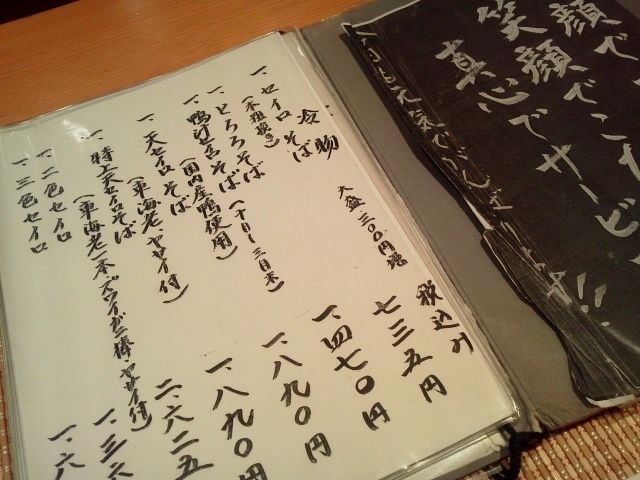 顔で
笑顔でこた
真心でサービ
!!
今日も元気でがんばります
冷物 大盛三〇〇円増 税込み
一、セイロそば 七三五円
一、とろろそば 一、四七〇円
一、鴨汁セイロそば 一、八九〇円
(国内産鴨使用)
一、天セイロそば 一、八九〇円
(車海老・ヤサイ付)
一、特上天セイロそば 二、六二五
(車海老一本・ズワイガニ棒・ヤサイ付)
一、二色セイロ 一、三六
一、三色セイロ 一、六